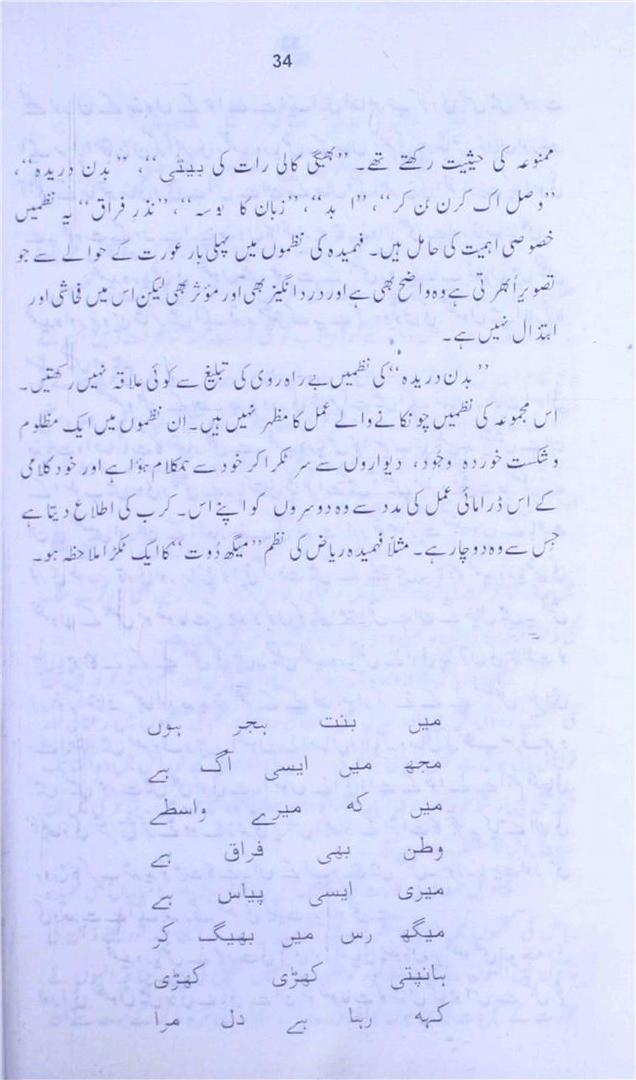 34
ممنوعہ کی حیثیت رکھتے تھے۔ ”بھیگی کالی رات کی بیٹی“، ”بدن دریدہ“،
”وصل اک کرن بن کر“، ”ابد“، ”زبان کا بوسہ“، ”نذرِ فراق“ یہ نظمیں
خصوصی اہمیت کی حامل ہیں۔ فہمیدہ کی نظموں میں پہلی بار عورت کے حوالے سے جو
تصویر اُبھرتی ہے وہ واضح بھی ہے اور درد انگیز بھی اور مؤثر بھی لیکن اس میں فحاشی اور
ابتذال نہیں ہے۔
”بدن دریدہ“ کی نظمیں بے راہ روی کی تبلیغ سے کوئی علاقہ نہیں رکھتیں۔
اس مجموعہ کی نظمیں چونکانے والے عمل کا مظہر نہیں ہیں۔ ان نظموں میں ایک مظلوم
و شکست خوردہ وجود، دیواروں سے سر ٹکرا کر خود سے ہمکلام ہؤا ہے اور خود کلامی
کے اس ڈرامائی عمل کی مدد سے وہ دوسروں کو اپنے اس۔ کرب کی اطلاع دیتا ہے
جس سے وہ دو چار ہے۔ مثلاً فہمیدہ ریاض کی نظم ”میگھ دُوت“ کا ایک ٹکڑا ملاحظہ ہو۔
میں بنت ہجر ہوں
مجھ میں ایسی آگ ہے
میں کہ میرے واسطے
وطن بھی فراق ہے
میری ایسی پیاس ہے
میگھ رس میں بھیگ کر
ہانپتی کھڑی کھڑی
کہہ رہا ہے دل مرا